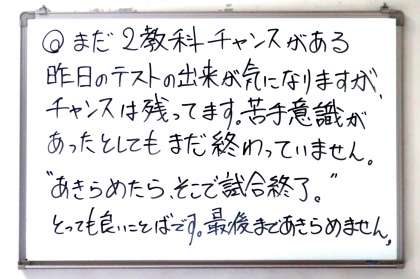 ◎まだ2教科チャンスがある
昨日のテストの出来が気になりますが、
チャンスは残ってます。苦手意識が
あったとしてもまだ終わっていません。
"あきらめたら、そこで試合終了。"
とっても良いことばです。最後まであきらめません。